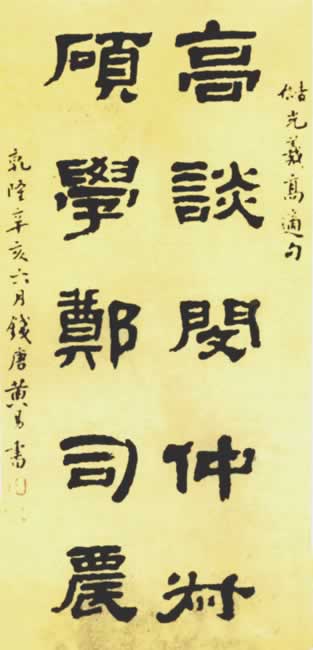 儲光羲高適句
高談閔仲叔
碩學鄭司農
乾隆辛亥六月錢唐黃易書